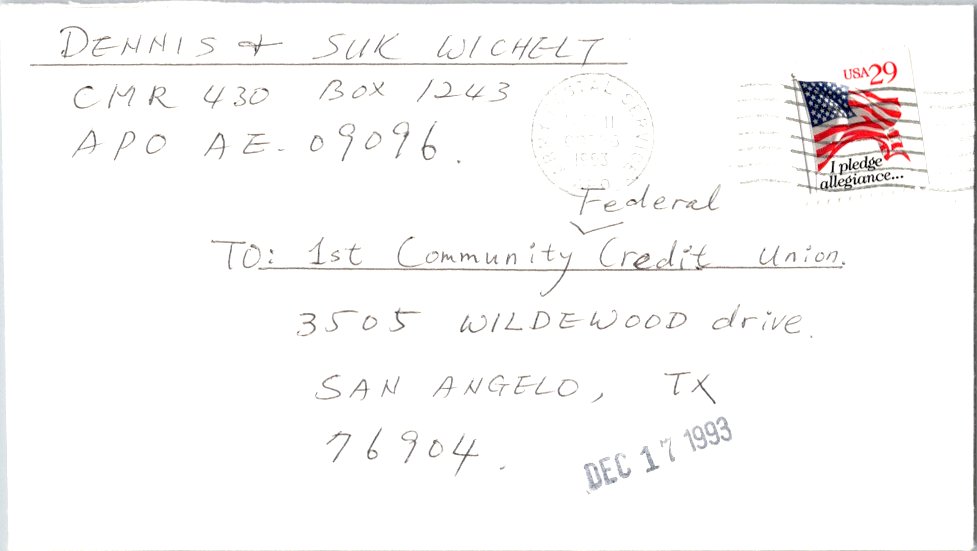 DENNIS & SUK WICHELT
CMR 430 BOX 1243
APO AE. 09096.
USA 29
I pledge
allegiance...
Federal
TO: 1st Community Credit Union.
3505 WILDEWOOD drive.
SAN ANGELO, TX
76904.
DEC 17 1993